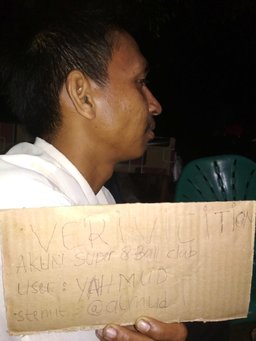 VERIVICITION
AKUN SUPER 8 Ball club
User : YAHMUD
stemit : @aymud